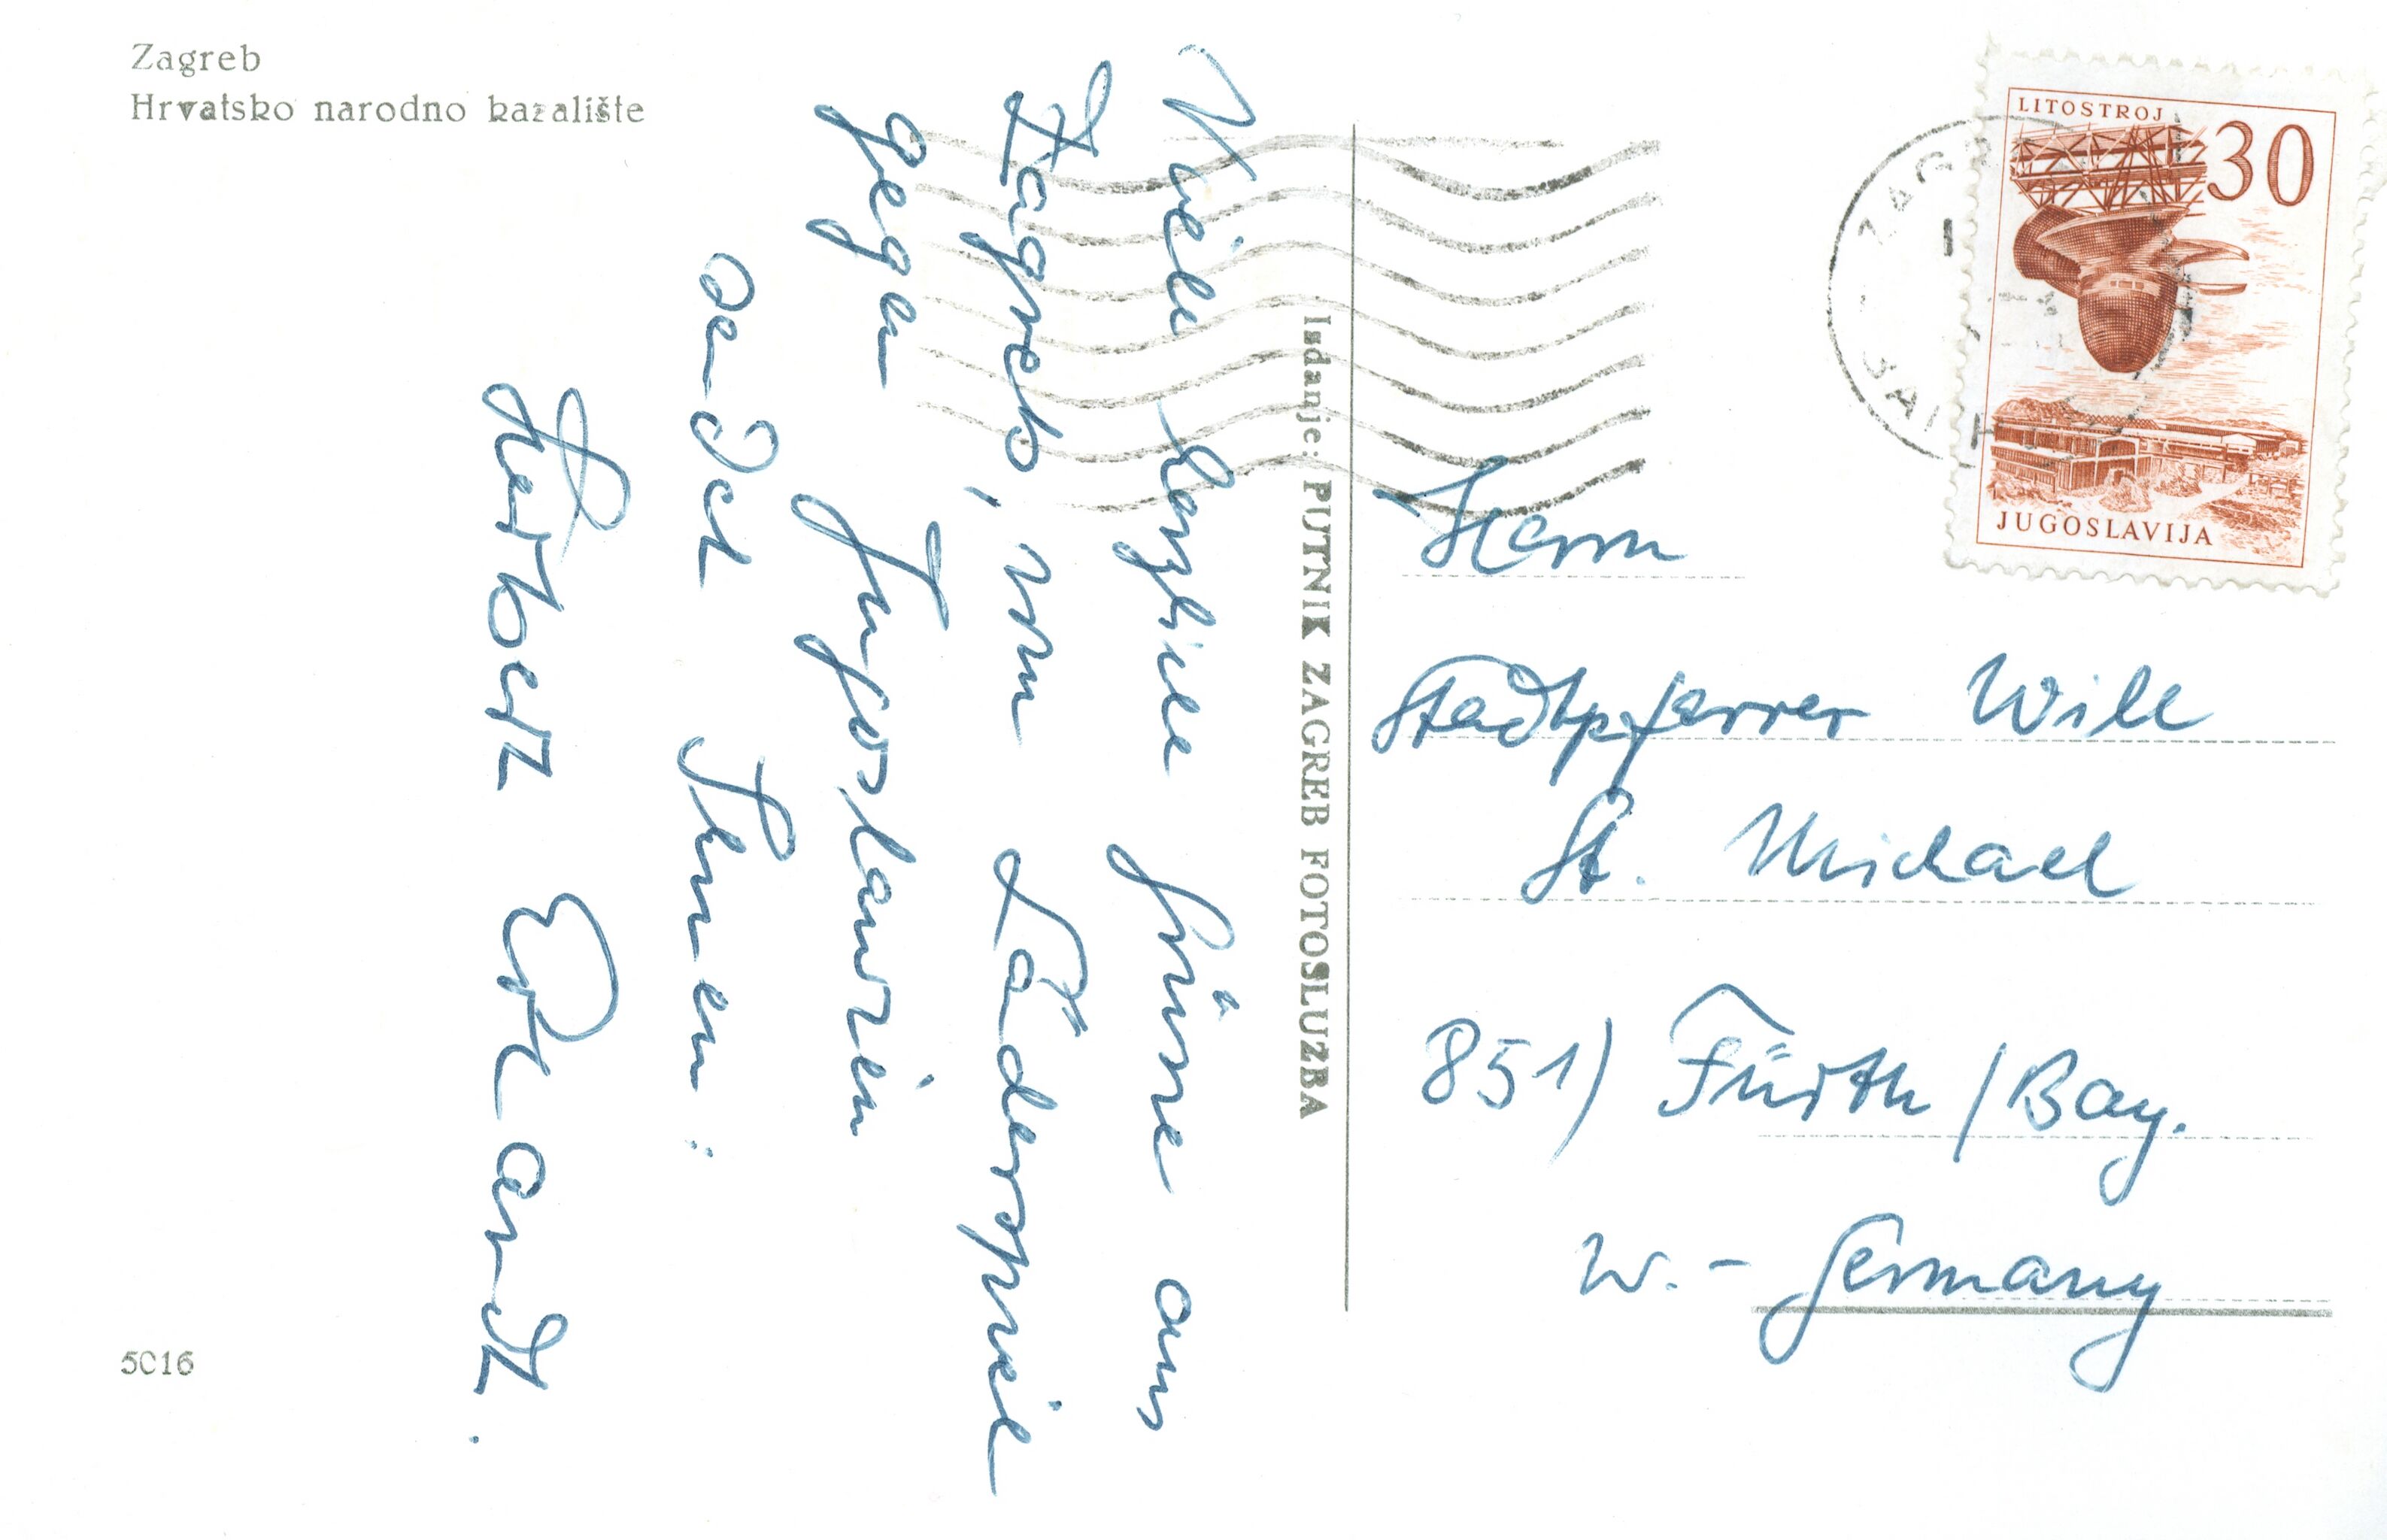 Zagreb
Hrvatsko narodno kazalište
Viele herzliche Grüsse aus
Zagreb, vom Länderspiel
gegen Jugoslawien
sendet Ihnen:
Herbert Erhardt.
5016
Izdanje: PUTNIK ZAGREB FOTOSLUZBA
LITOSTROJ
30
JUGOSLAVIJA
Herrn
Stadtpfarrer Will
St. Michael
851) Fürth / Bay.
W.- Germany